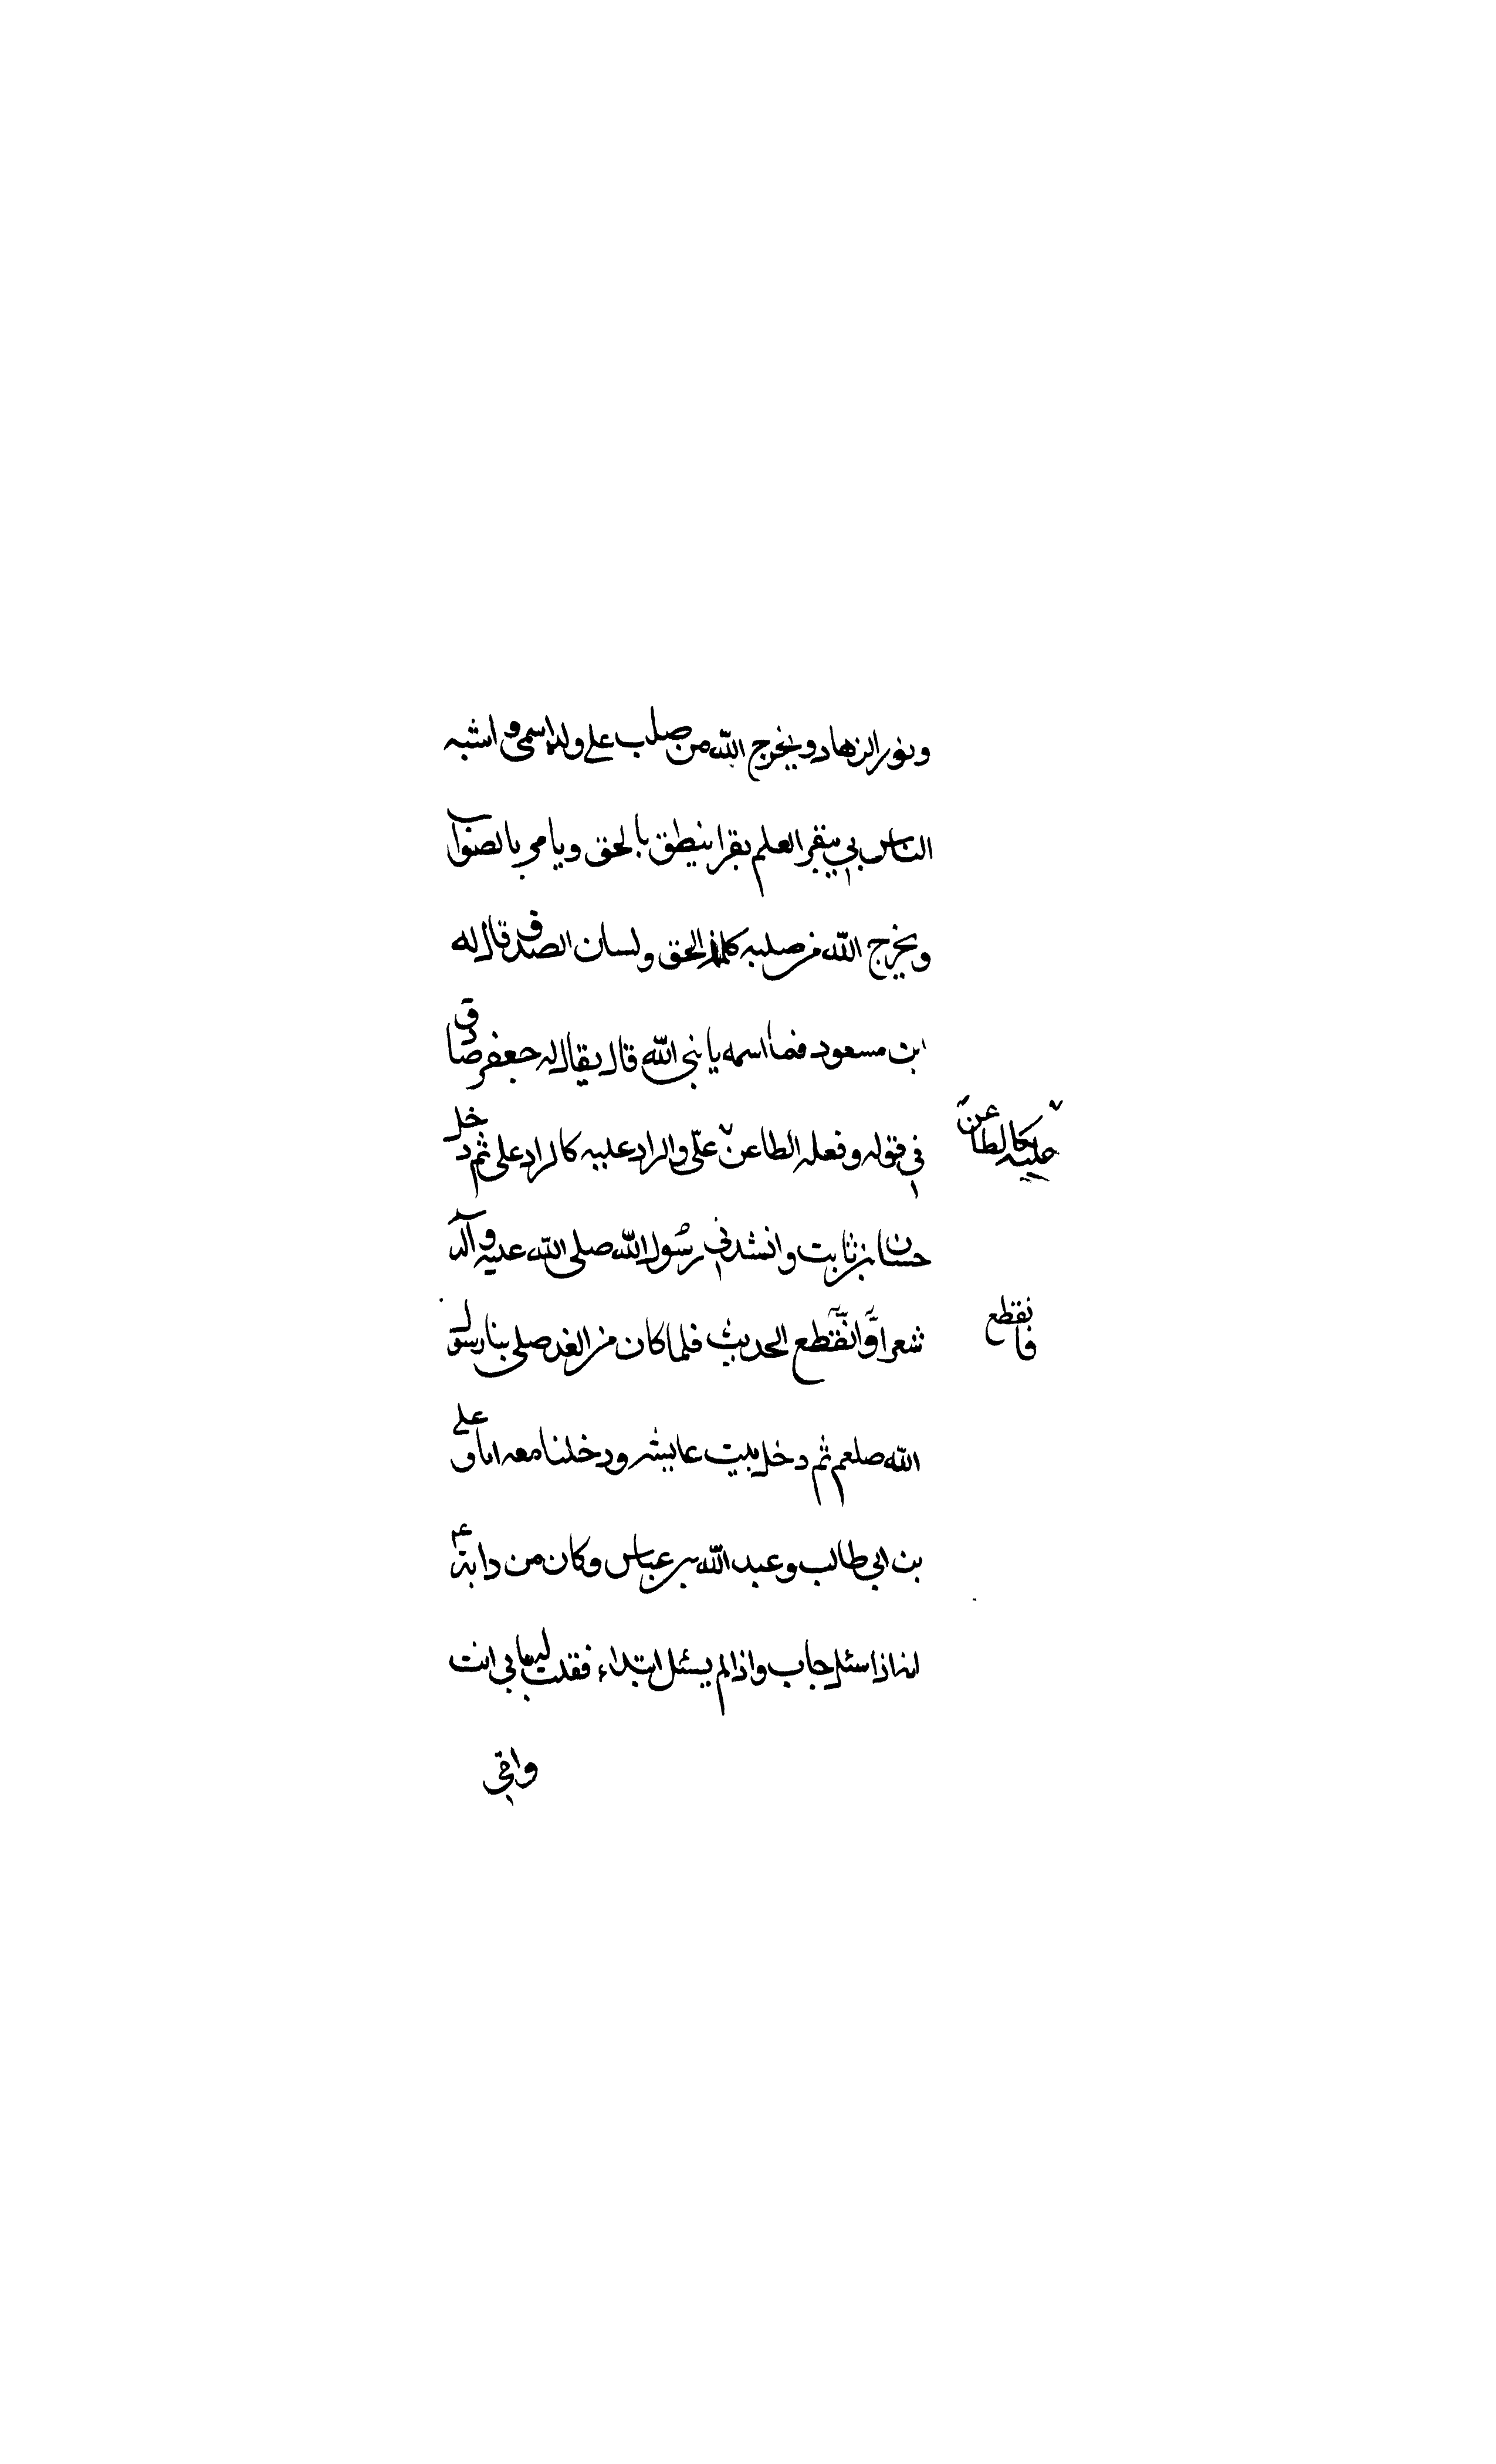 ونور الزهاد ويخرج الله من صلب علي ولدا سمي واشبه
الناس بي يبقر العلم بقرا ينطق بالحق ويامر بالصواب
ويخرج الله من صلبه كلمة الحق ولسان الصدق قال له
ابن مسعود فما اسمه يا نبي الله قال يقال له جعفر صادق
في قوله وفعله الطاعن علي والراد عليه كالراد علي ثم دخل
عليه كالطاعن
حسان بن ثابت وانشد في رسول الله صلى الله عليه وآله
شعرا وانقطع الحديث فلما كان من الغد صلى بنا رسول
فانقطع
الله صلعم ثم دخل بيت عايشه ودخلنا معه انا وعلي
بن ابي طالب وعبد الله بن عباس وكان من دابه ع
انه اذا سئل جاب واذا لم يسئل ابتداء فقلت له بابي انت
وافي